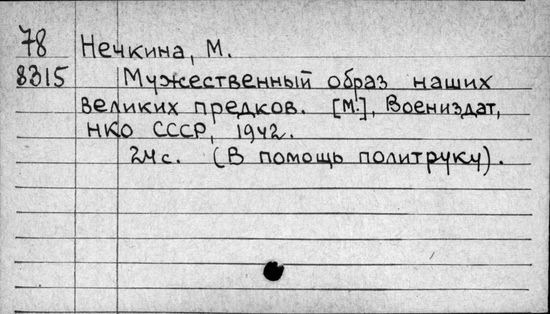 78 Нечкина, М.
8315 Мужественный образ наших
великих предков. [М.], Воениздат,
НКО СССР, 1942.
24 с. (В помощь политруку).